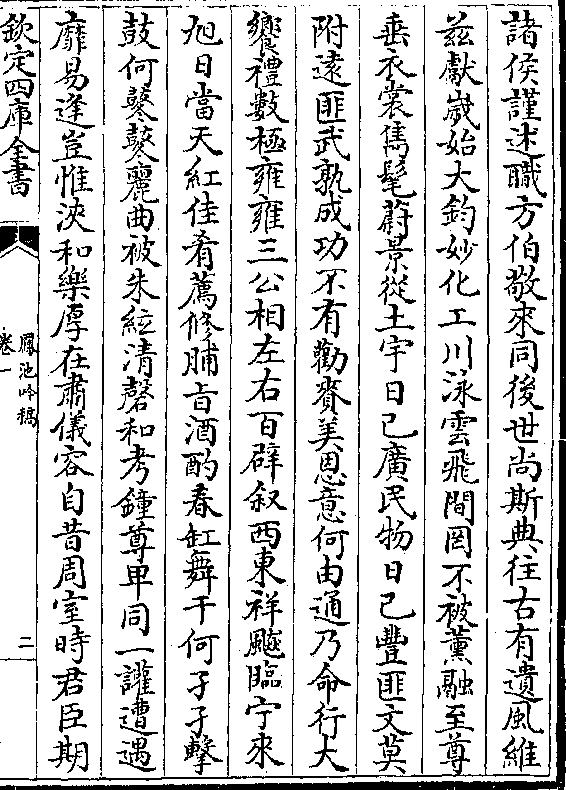 諸侯謹述職方伯敬來同後世尚斯典徃古有遺風維
兹獻嵗始大鈞妙化工川泳雲飛間罔不被薫融至尊
垂衣裳雋髦蔚景從土宇日已廣民物日已豐匪文莫
附逺匪武孰成功不有勸賚美恩意何由通乃命行大
饗禮數極雍雍三公相左右百辟叙西東祥飈臨宁來
旭日當天紅佳肴薦修脯旨酒酌春缸舞干何孑孑擊
鼓何鼕鼕麗曲被朱絃清磬和考鐘尊卑同一讙遭遇
靡易逢豈惟浹和樂厚在肅儀容自昔周室時君臣期
欽定四庫全書
鳳池吟稿
卷一
二